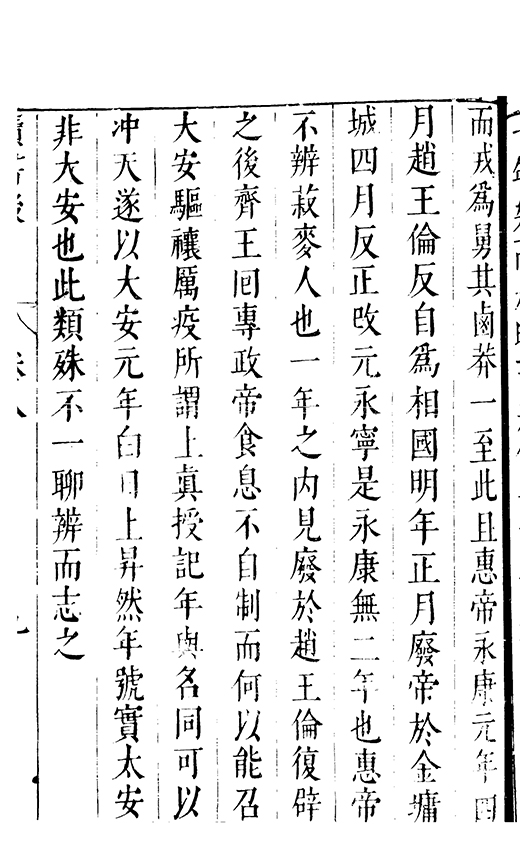 而戎爲舅其鹵莽一至此且惠帝永康元年四
月趙王倫反自爲相國明年正月廢帝於金墉
城四月反正改元永寧是永康無二年也惠帝
不辨菽麥人也一年之内見廢於趙王倫復辟
之後齊王冏專政帝食息不自制而何以能召
大安驅禳厲疫所謂上眞授記年與名同可以
冲天遂以大安元年白日上昇然年號實太安
非大安也此類殊不一聊辨而志之
卷八
九